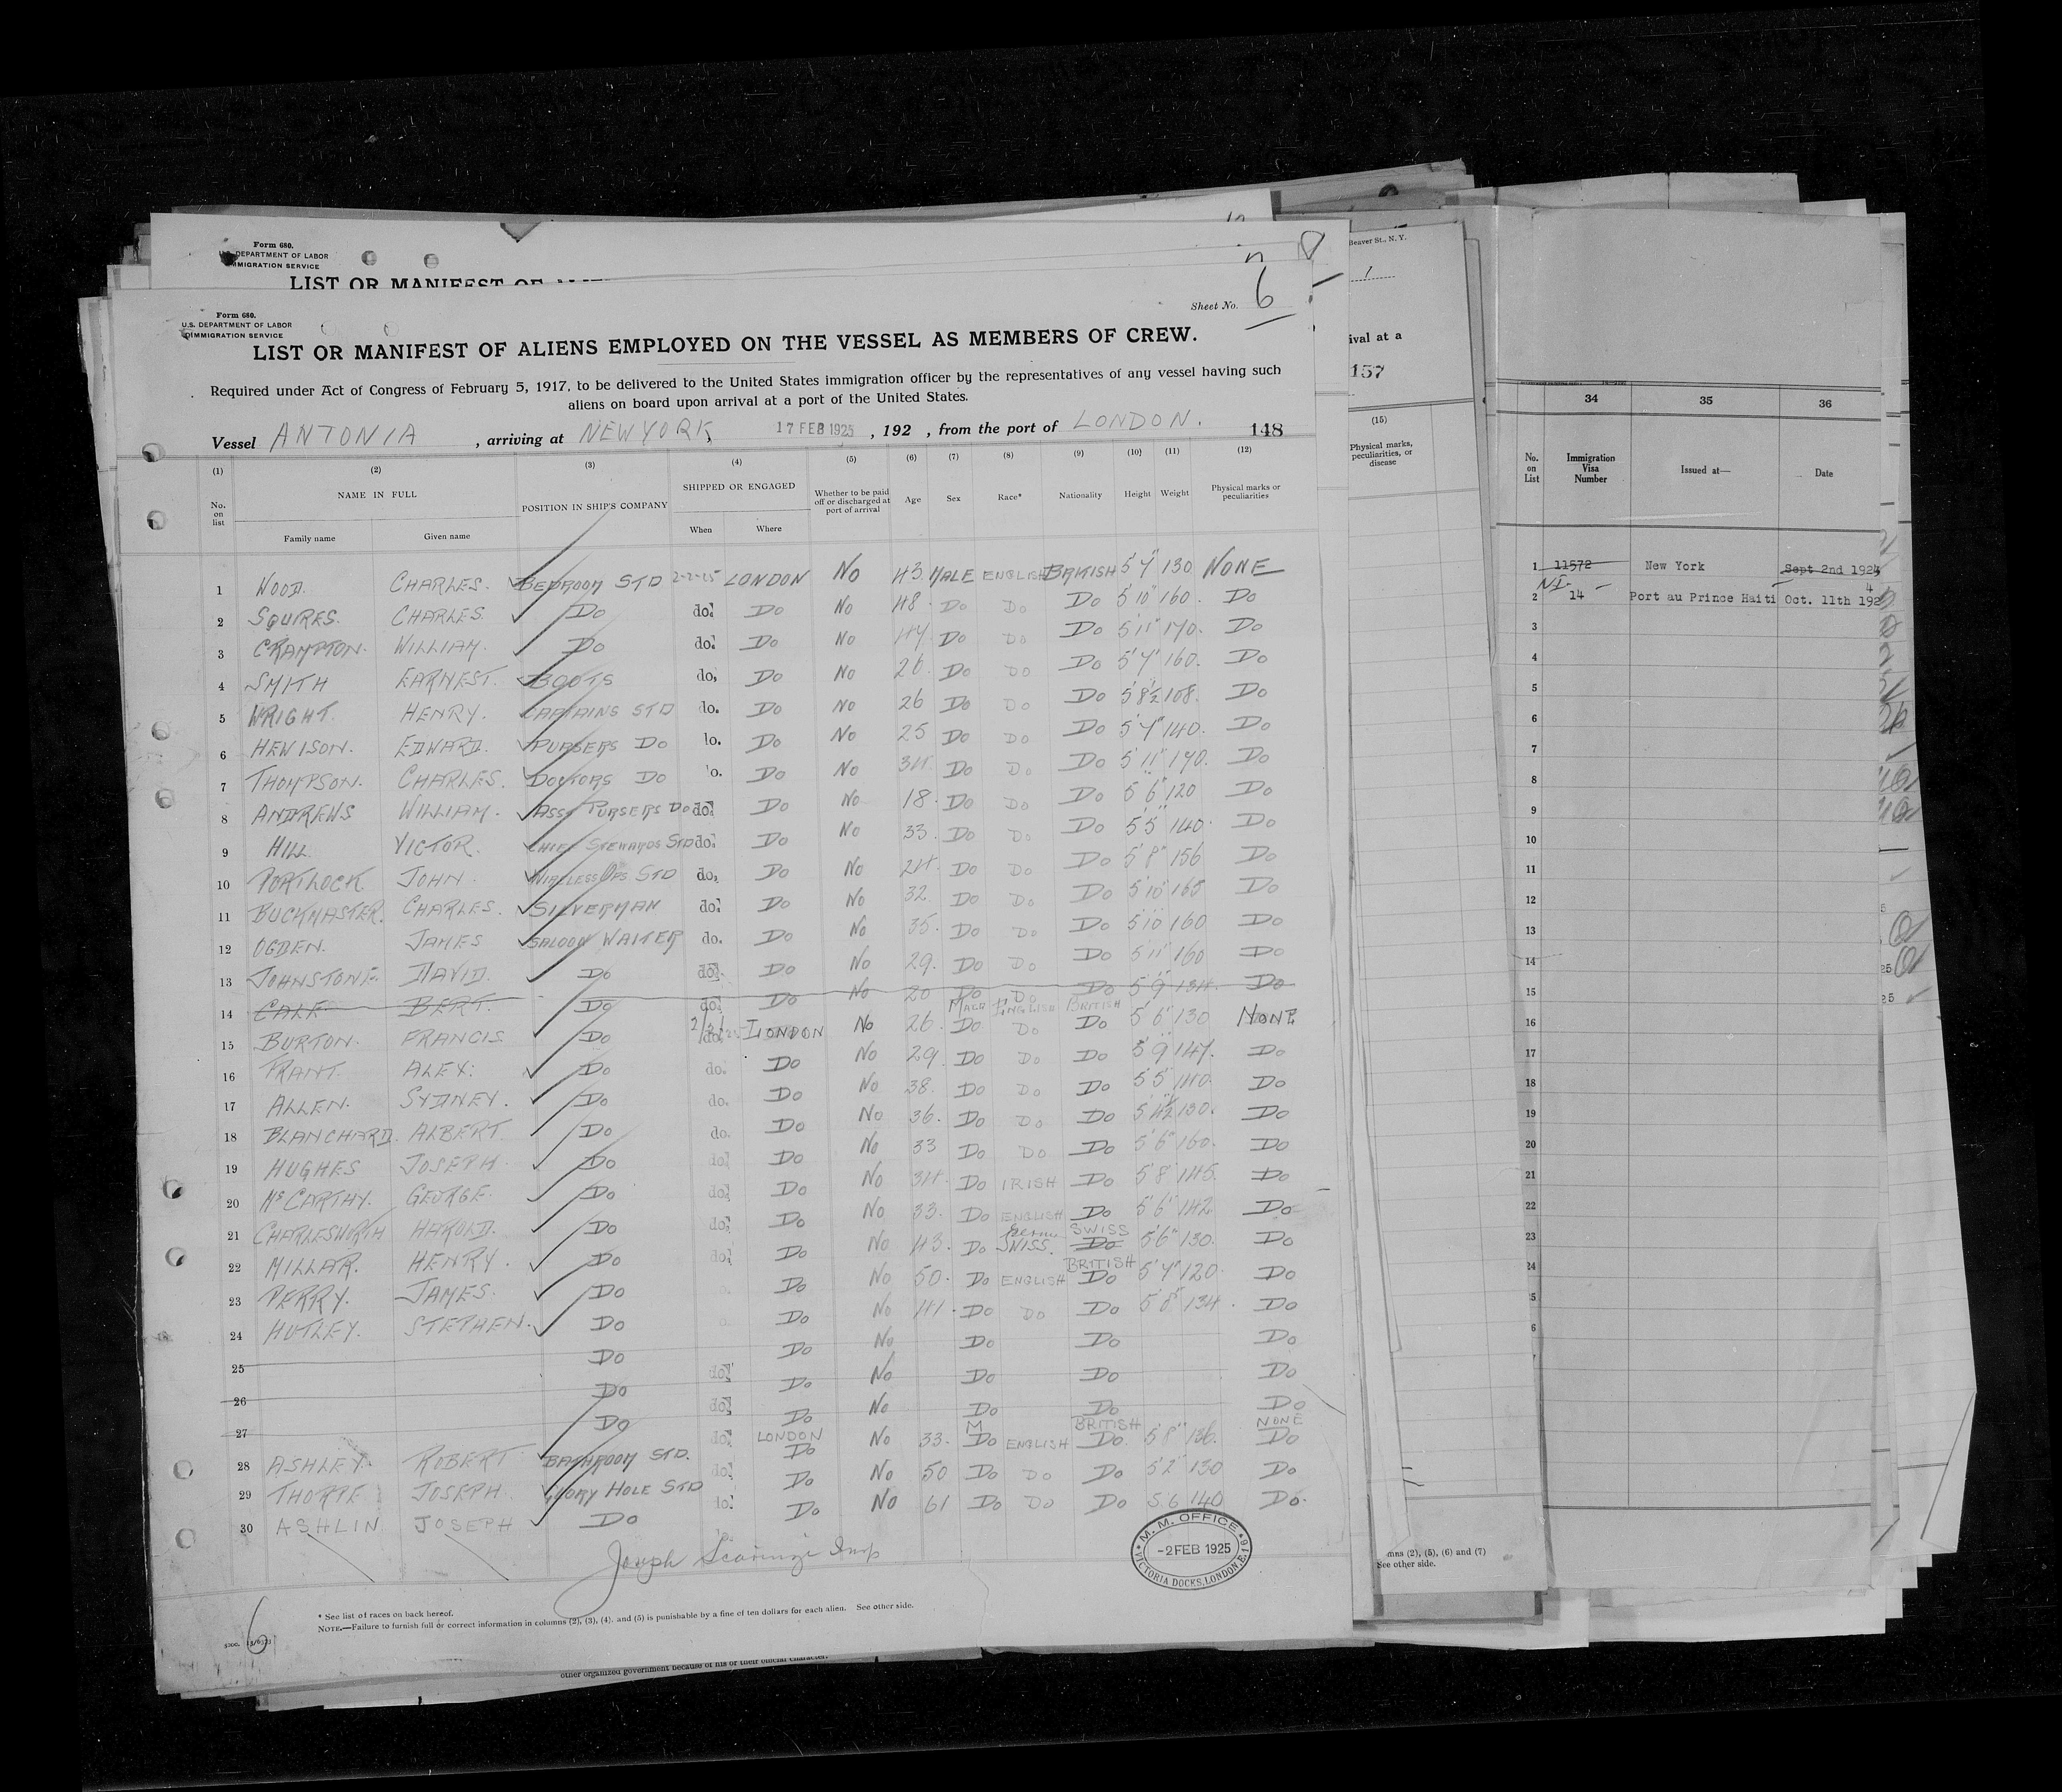 Form 680.
U.S. DEPARTMENT OF LABOR
IMMIGRATION SERVICE
Form 680.
U.S. DEPARTMENT OF LABOR
IMMIGRATION SERVICE
Sheet No. 6
LIST OR MANIFEST OF ALIENS EMPLOYED ON THE VESSEL AS MEMBERS OF CREW.
Required under Act of Congress of February 5, 1917, to be delivered to the United States immigration officer by the representatives of any vessel having such
aliens on board upon arrival at a port of the United States.
Vessel ANTONIA, arriving at NEW YORK, 17 FEB 1925, 192 , from the port of LONDON. 148
(1) (2) (3) (4) (5) (6) (7) (8) (9) (10) (11) (12)
No. on list NAME IN FULL POSITION IN SHIP'S COMPANY SHIPPED OR ENGAGED Whether to be paid off or discharged at port of arrival Age Sex Race* Nationality Height Weight Physical marks or peculiarities
Family name Given name When Where
1 WOOD. CHARLES. BEDROOM STD 2-2-25 LONDON NO 43 MALE ENGLISH BRITISH 5'7" 130 NONE
2 SQUIRES. CHARLES. DO do. DO NO 48. DO DO DO 5'10" 160. DO
3 CRAMPTON. WILLIAM. DO do. DO NO 44. DO DO DO 5'11" 170. DO
4 SMITH EARNEST. BOOTS do. DO NO 26. DO DO DO 5'7" 160. DO
5 WRIGHT. HENRY. CAPTAINS STD do. DO NO 26 DO DO DO 5'8½ 108. DO
6 HEWISON. EDWARD. PURSERS DO lo. DO NO 25 DO DO DO 5'7" 140. DO
7 THOMPSON. CHARLES. DOCTORS DO 'o. DO NO 34. DO DO DO 5'11" 170. DO
8 ANDREWS WILLIAM. ASST PURSERS DO do. DO NO 18. DO DO DO 5'6" 120 DO
9 HILL. VICTOR. CHIEF STEWARDS STD do. DO NO 33. DO DO DO 5'5" 140. DO
10 PORTLOCK JOHN. WIRELESS OPS STD do. DO NO 24. DO DO DO 5'8" 156 DO
11 BUCKMASTER. CHARLES. SILVERMAN do. DO NO 32 DO DO DO 5'10" 165 DO
12 OGDEN. JAMES SALOON WAITER do. DO NO 35. DO DO DO 5'10" 160 DO
13 JOHNSTONE. DAVID. DO do. DO NO 29. DO DO DO 5'11" 160 DO
14 CALE BERT. DO do. DO NO 20 DO DO DO 5'9" 134. DO
MALE ENGLISH BRITISH
15 BURTON. FRANCIS DO do. LONDON NO 26. DO DO DO 5'6" 130 NONE
16 PRANT. ALEX: DO do. DO NO 29. DO DO DO 5'9" 147. DO
17 ALLEN. SYDNEY. DO do. DO NO 38. DO DO DO 5'5" 140. DO
18 BLANCHARD. ALBERT. DO do. DO NO 36. DO DO DO 5'4½ 130. DO
19 HUGHES JOSEPH. DO do. DO NO 33 DO DO DO 5'6" 160. DO
20 McCARTHY. GEORGE. DO do. DO NO 34. DO IRISH DO 5'8" 145. DO
21 CHARLESWORTH HAROLD. DO do. DO NO 33. DO ENGLISH DO 5'6" 142 DO
SWISS
22 MILLAR. HENRY. DO do. DO NO 43. DO SWISS. DO 5'6" 130. DO
BRITISH
23 PERRY. JAMES. DO DO NO 50. DO ENGLISH DO 5'4" 120. DO
24 HUTLEY. STEPHEN. DO DO NO 41. DO DO DO 5'8" 134. DO
25 DO do. DO NO DO DO DO
26 DO do. DO NO DO DO DO
27 DO do. DO NO DO DO DO
LONDON M BRITISH NONE
28 ASHLEY. ROBERT BATHROOM STD. do. DO NO 33. DO ENGLISH DO. 5'8" 136. DO
29 THORPE JOSEPH GLORY HOLE STD lo. DO NO 50 DO DO DO 5'2" 130 DO
30 ASHLIN JOSEPH DO DO NO 61 DO DO DO 5'6 140 DO.
M. M. OFFICE
-2 FEB 1925
VICTORIA DOCKS, LONDON, E.16
* See list of races on back hereof.
NOTE.—Failure to furnish full or correct information in columns (2), (3), (4), and (5) is punishable by a fine of ten dollars for each alien. See other side.
6
other organized government because of his or their official character.
Beaver St., N. Y.
ival at a
157
(15)
Physical marks, peculiarities, or disease
mns (2), (5), (6) and (7)
See other side.
34 35 36
No. on List Immigration Visa Number Issued at— Date
1 11572 New York Sept 2nd 1924
2 14 Port au Prince Haiti Oct. 11th 192
3
4
5
6
7
8
9
10
11
12
13
14
15
16
17
18
19
20
21
22
23
24